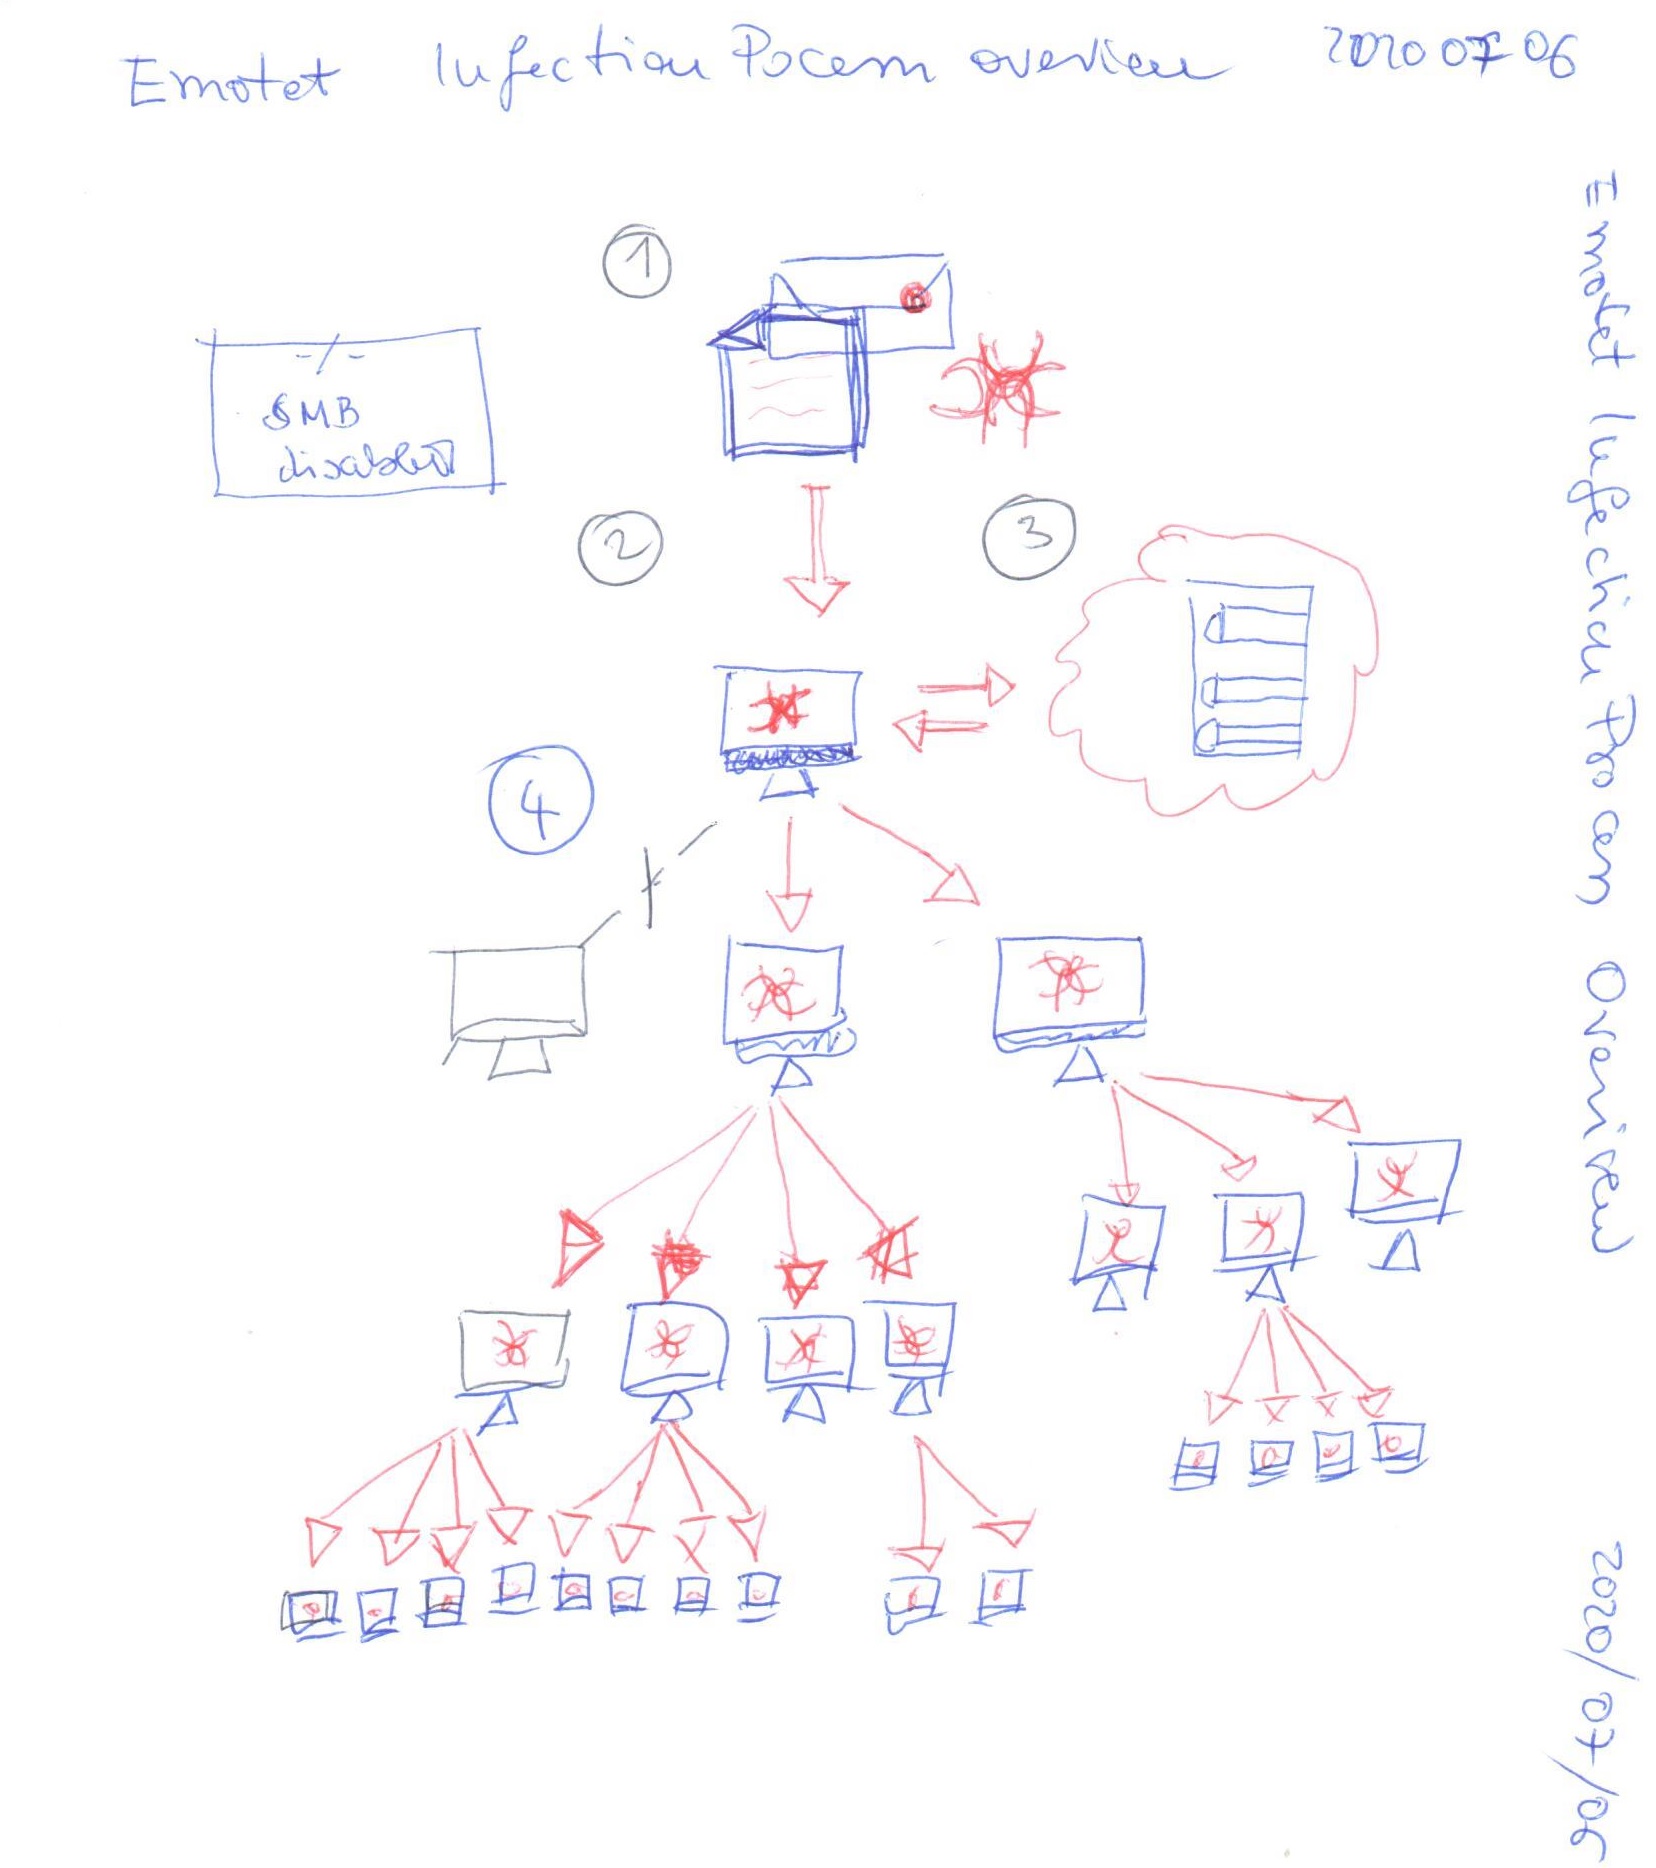 Emotet Infection Pocess overview 2020 07 06
1
-/-
SMB
disabled
2
3
4
Emotet Infection Process Overview 2020/07/06